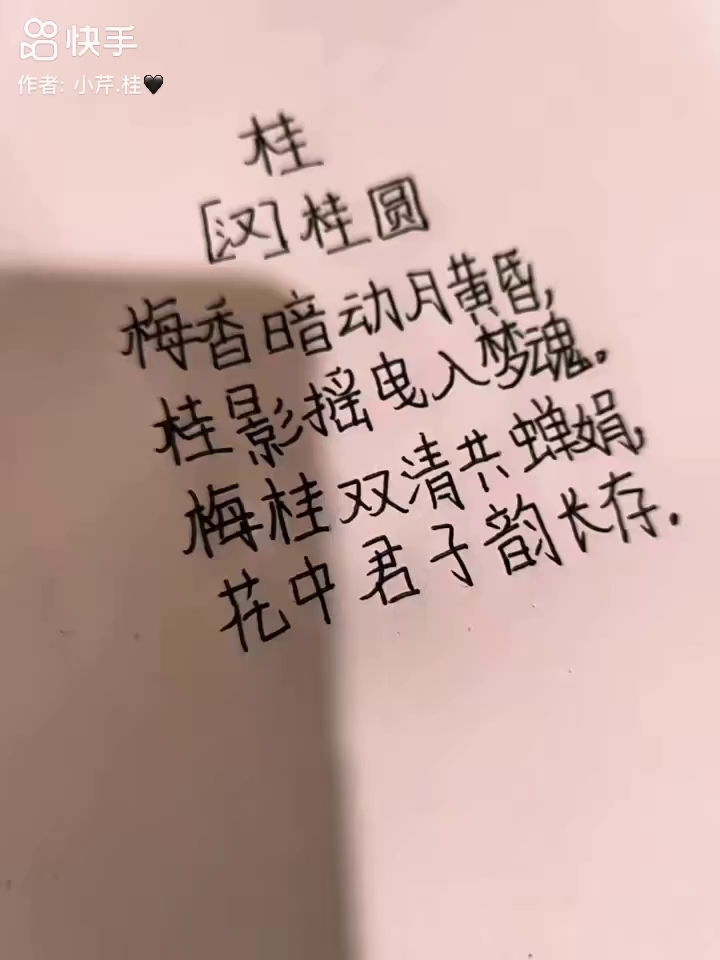 快手
作者: 小芹.桂🖤
桂
[汉]桂圆
梅香暗动月黄昏,
桂影摇曳入梦魂。
梅桂双清共蝉娟,
花中君子韵长存.